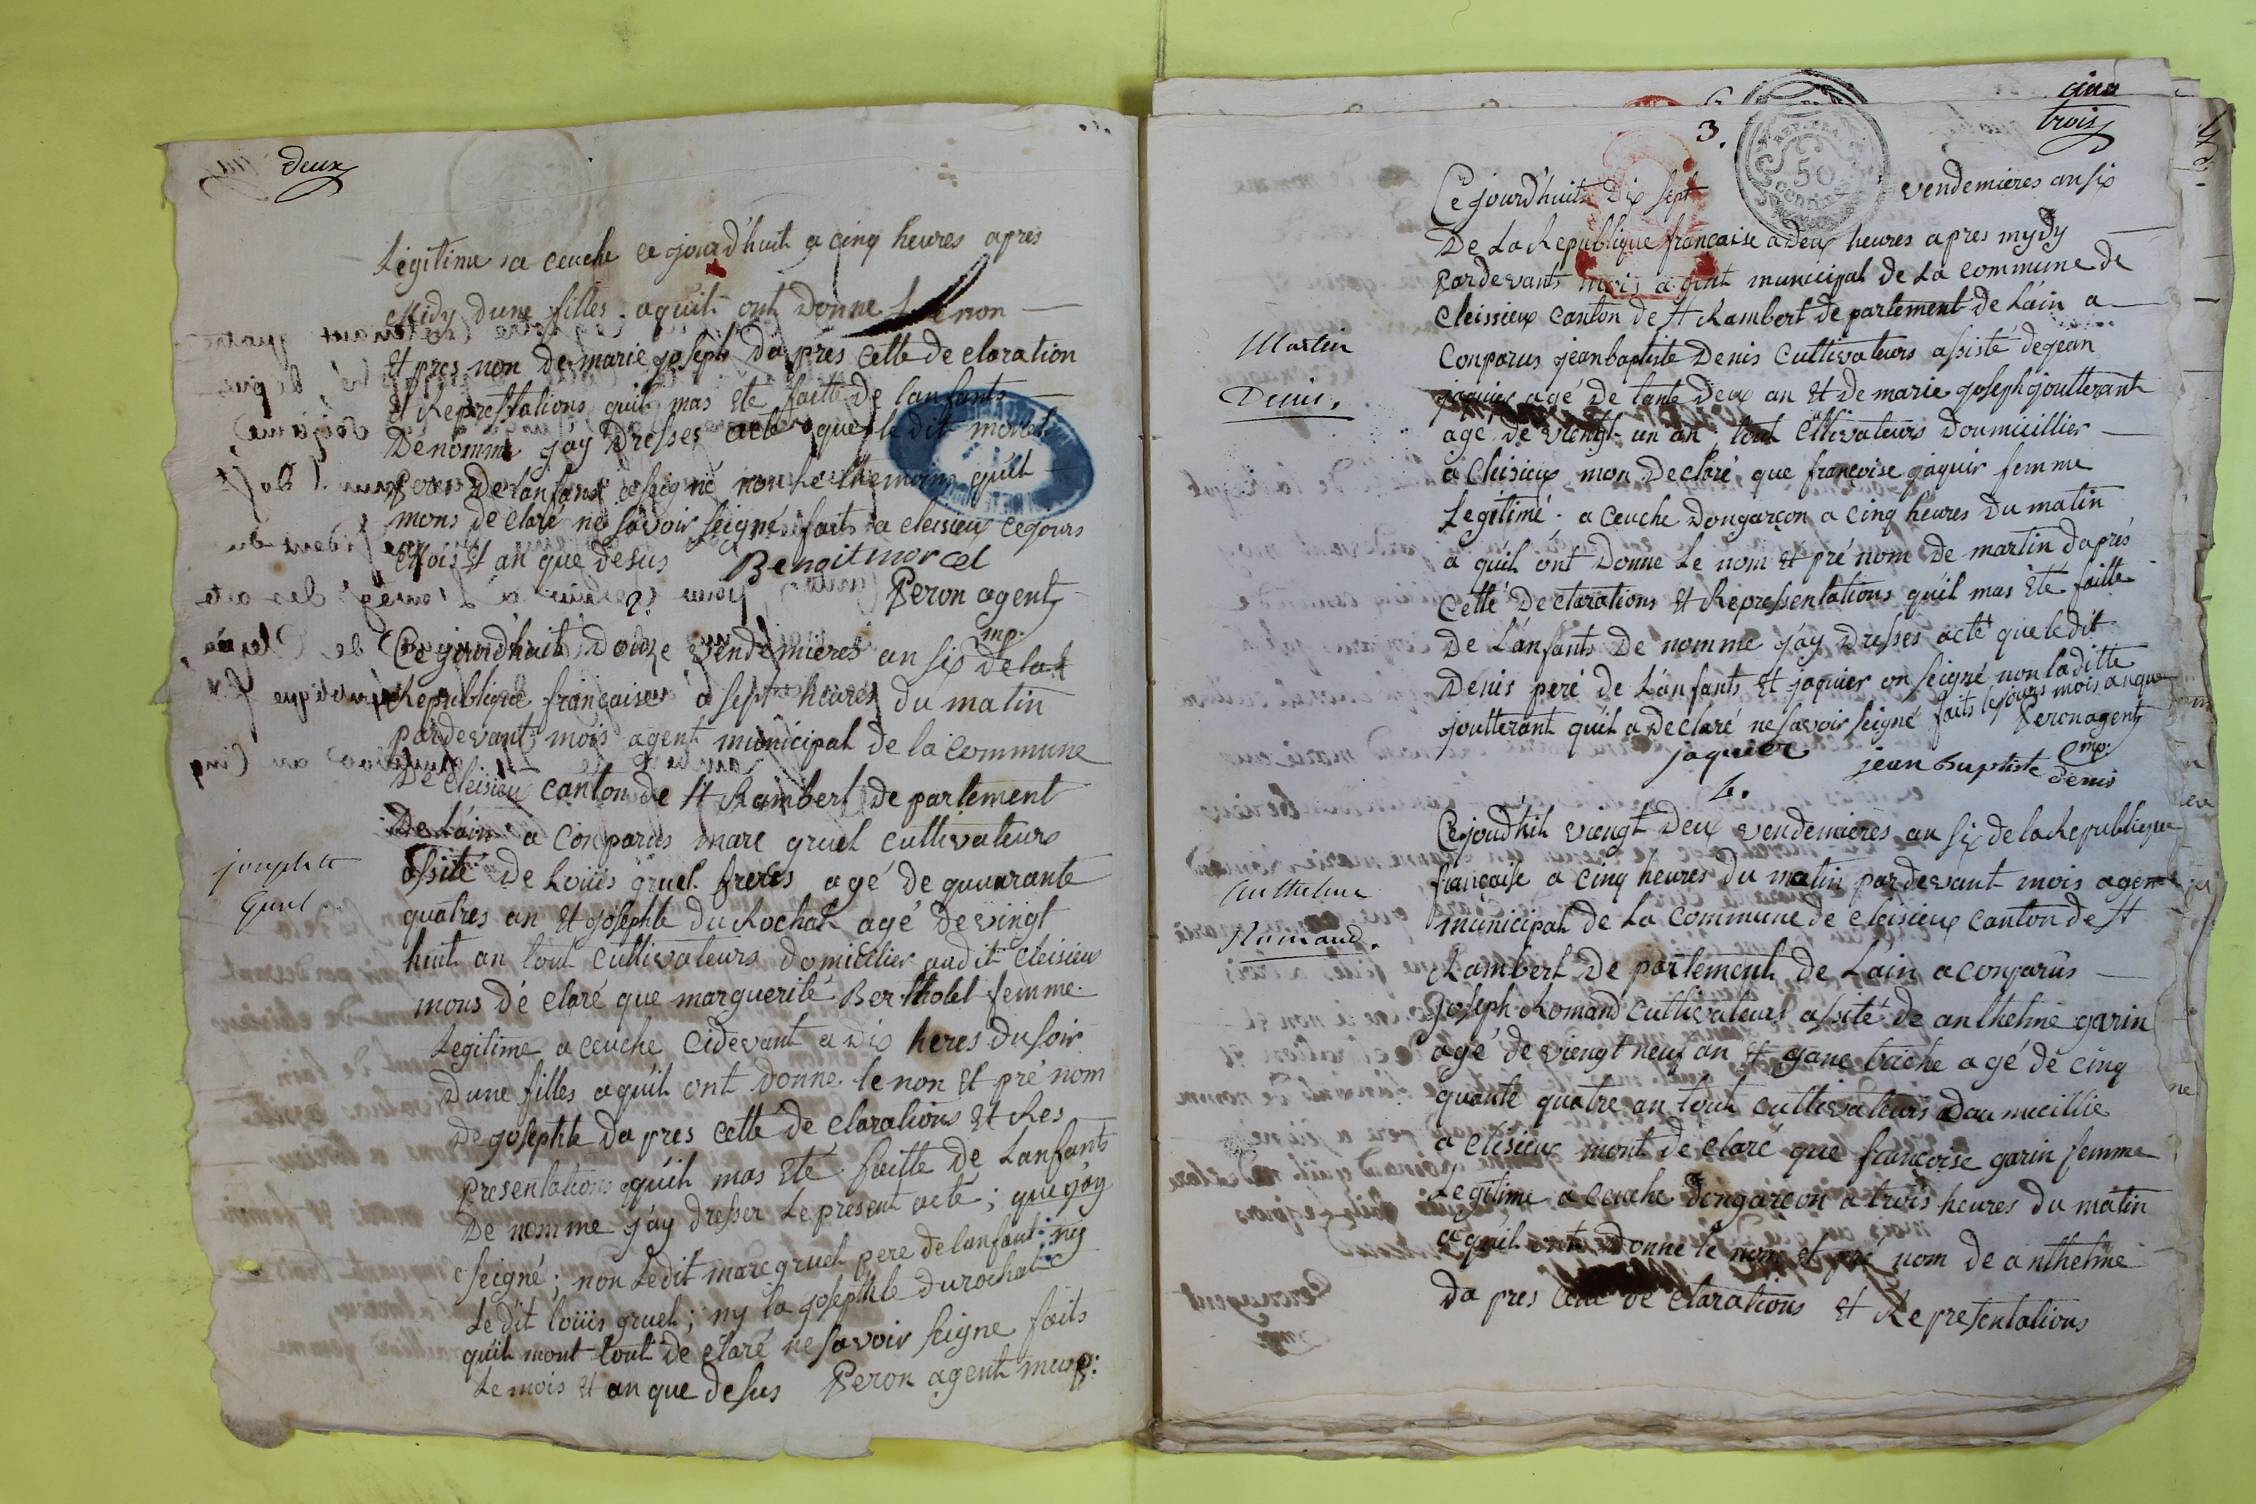 deux
Legitime a ceuche ce jourd'huit a cinq heures apres
midy dune filles aquil ont donne Le non
Et pres non de marie joseph da pres cette de claration
& Represtations quil mas eté faitte de lanfants
Denomme jay Dresses acte que le dit morcel
pere De lanfant a seigné non le themoins quil
mons de claré ne savoir seigné faits a cleisieux ce jours
mois & an que desus Benoit morcel
Peron agent
mp.
2.
Ce jourd'huit Douze vendemieres an six de la
Republique française a sept heures du matin
pardevant mois agent municipal de la commune
De Cleisieu canton de St Rambert De partement
De Lain a Conparus marc gruel cultivateurs
assité De Loüis gruel freres agé de quuarante
quatres an & josephte du Rochat agé De vingt
huit an tout cultivateurs domicilier audit Cleisieu
mons dé claré que marguerité Bertholet femme
Legitime a ceuche cidevant a dix heres Du soir
Dune filles aquil ont donne le non & pré nom
De josephte da pres cette de clarations & Res
presentations quil mas Eté faitte de Lanfants
De nomme jay dresser Le present acté ; que jay
seigné ; non Ledit marc gruel pere de lanfant ny
Le dit loüis gruel ; ny la josephte durochat
quil mont tout de claré ne savoir seigne faits
Le mois & an que desus Peron agent mup:
josephte
Gruel
cinq
trois
3.
REP. FRA.
50
CENTIMES
Ce jourd'huit Dix sept vendemieres an six
De La Republique française a deux heures apres mydy
Pardevants mois agent municipal de La commune de
Cleissieux canton de St Rambert de partement de Lain a
Conparus jeanbaptiste Denis cultivateurs assisté de jean
jaquier agé de tante deux an & de marie joseph joutterant
agé de viengt un an tout Cltivateurs Doumicillier
a Cleisieux mon Declaré que françoise jaquir femme
Legitimé a ceuche Dongarçon a cinq heures Du matin
a quil ont Donne Le nom & pré nom De martin daprés
Cetté Declarations & Repressentations quil mas eté faitte
De Lanfants De nomme jay Dresses acté que le dit
Denis peré de Lanfants & jaquier on seigné non laditte
joutterant quil a Declaré ne savoir seigné faits le jours mois an que
Peron agent
mp.
jaquier jean Baptiste denis
Martin
Denis.
4.
Ce joudhit viengt Deux vendemières an six de la Republique
française a cinq heures Du matin pardevant mois agent
municipal de La Commune de cleisieux canton de St
Rambert De partement de Lain a conparûs
joseph Romand Cultivateurs assité de anthelme garin
agé de viengt neuf an & jane triche agé de cinq
quante quatre an tout cultivateurs Doumicillie
a Cleisieux mont de claré que françoise garin femme
Legitime a ceuche Dongarçon a trois heures du matin
a quil ont Donne le nom & pré nom de anthelme
Da pres Cette De clarations & Represtentations
Anthelme
Romand.